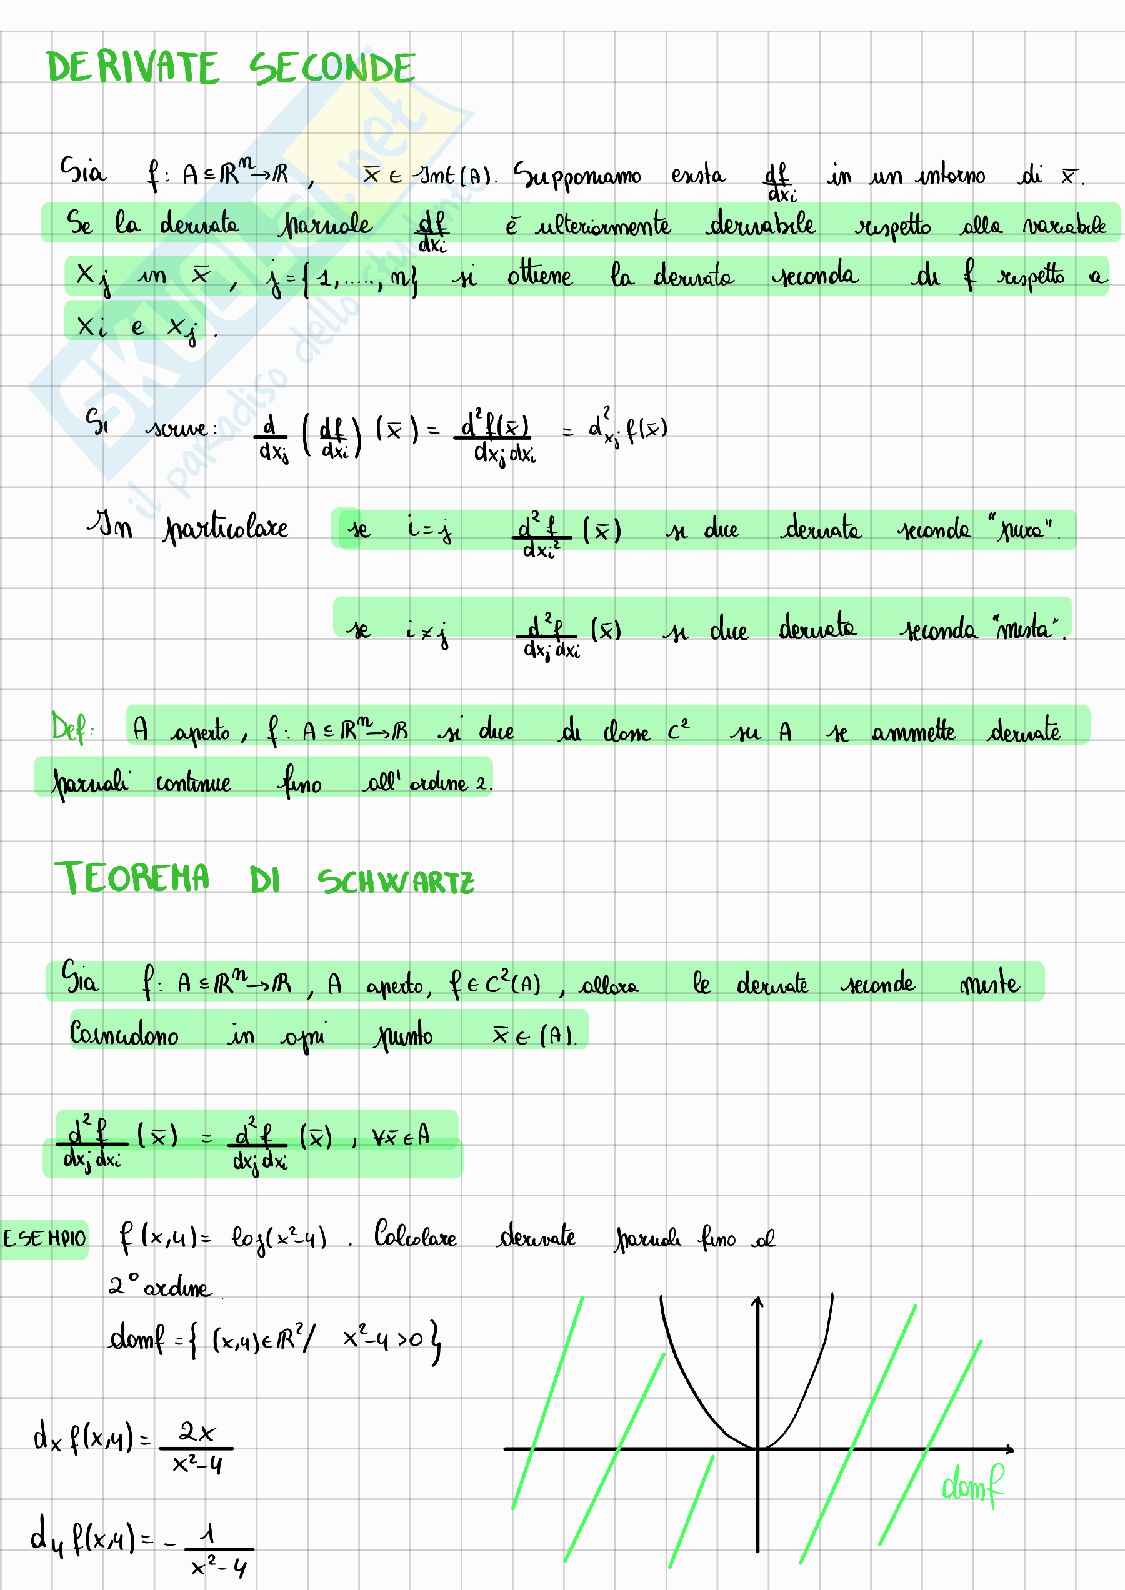 DERIVATE SECONDE
Sia f: A⊆ℝⁿ→ℝ, x̄ ∈ Int(A). Supponiamo esista df/dxᵢ in un intorno di x̄.
Se la derivata parziale df/dxᵢ è ulteriormente derivabile rispetto alla variabile
xⱼ in x̄, j={1,....,n} si ottiene la derivata seconda di f rispetto a
xᵢ e xⱼ.
Si scrive: d/dxⱼ (df/dxᵢ)(x̄) = d²f(x̄)/dxⱼdxᵢ = d²ₓⱼ f(x̄)
In particolare se i=j d²f/dxᵢ² (x̄) si dice derivata seconda "pura".
se i≠j d²f/dxⱼdxᵢ (x̄) si dice derivata seconda "mista".
Def: A aperto, f: A⊆ℝⁿ→ℝ si dice di classe C² su A se ammette derivate
parziali continue fino all'ordine 2.
TEOREMA DI SCHWARTZ
Sia f: A⊆ℝⁿ→ℝ, A aperto, f∈C²(A), allora le derivate seconde miste
Coincidono in ogni punto x̄∈(A).
d²f/dxⱼdxᵢ (x̄) = d²f/dxⱼdxᵢ (x̄), ∀x̄∈A
ESEMPIO f(x,y)= log(x²-y). Calcolare derivate parziali fino al
2° ordine.
domf={(x,y)∈ℝ²/ x²-y>0}
dₓ f(x,y)= 2x/(x²-y)
domf
d_y f(x,y)= - 1/(x²-y)
SKUOLA.net
il paradiso dello studente